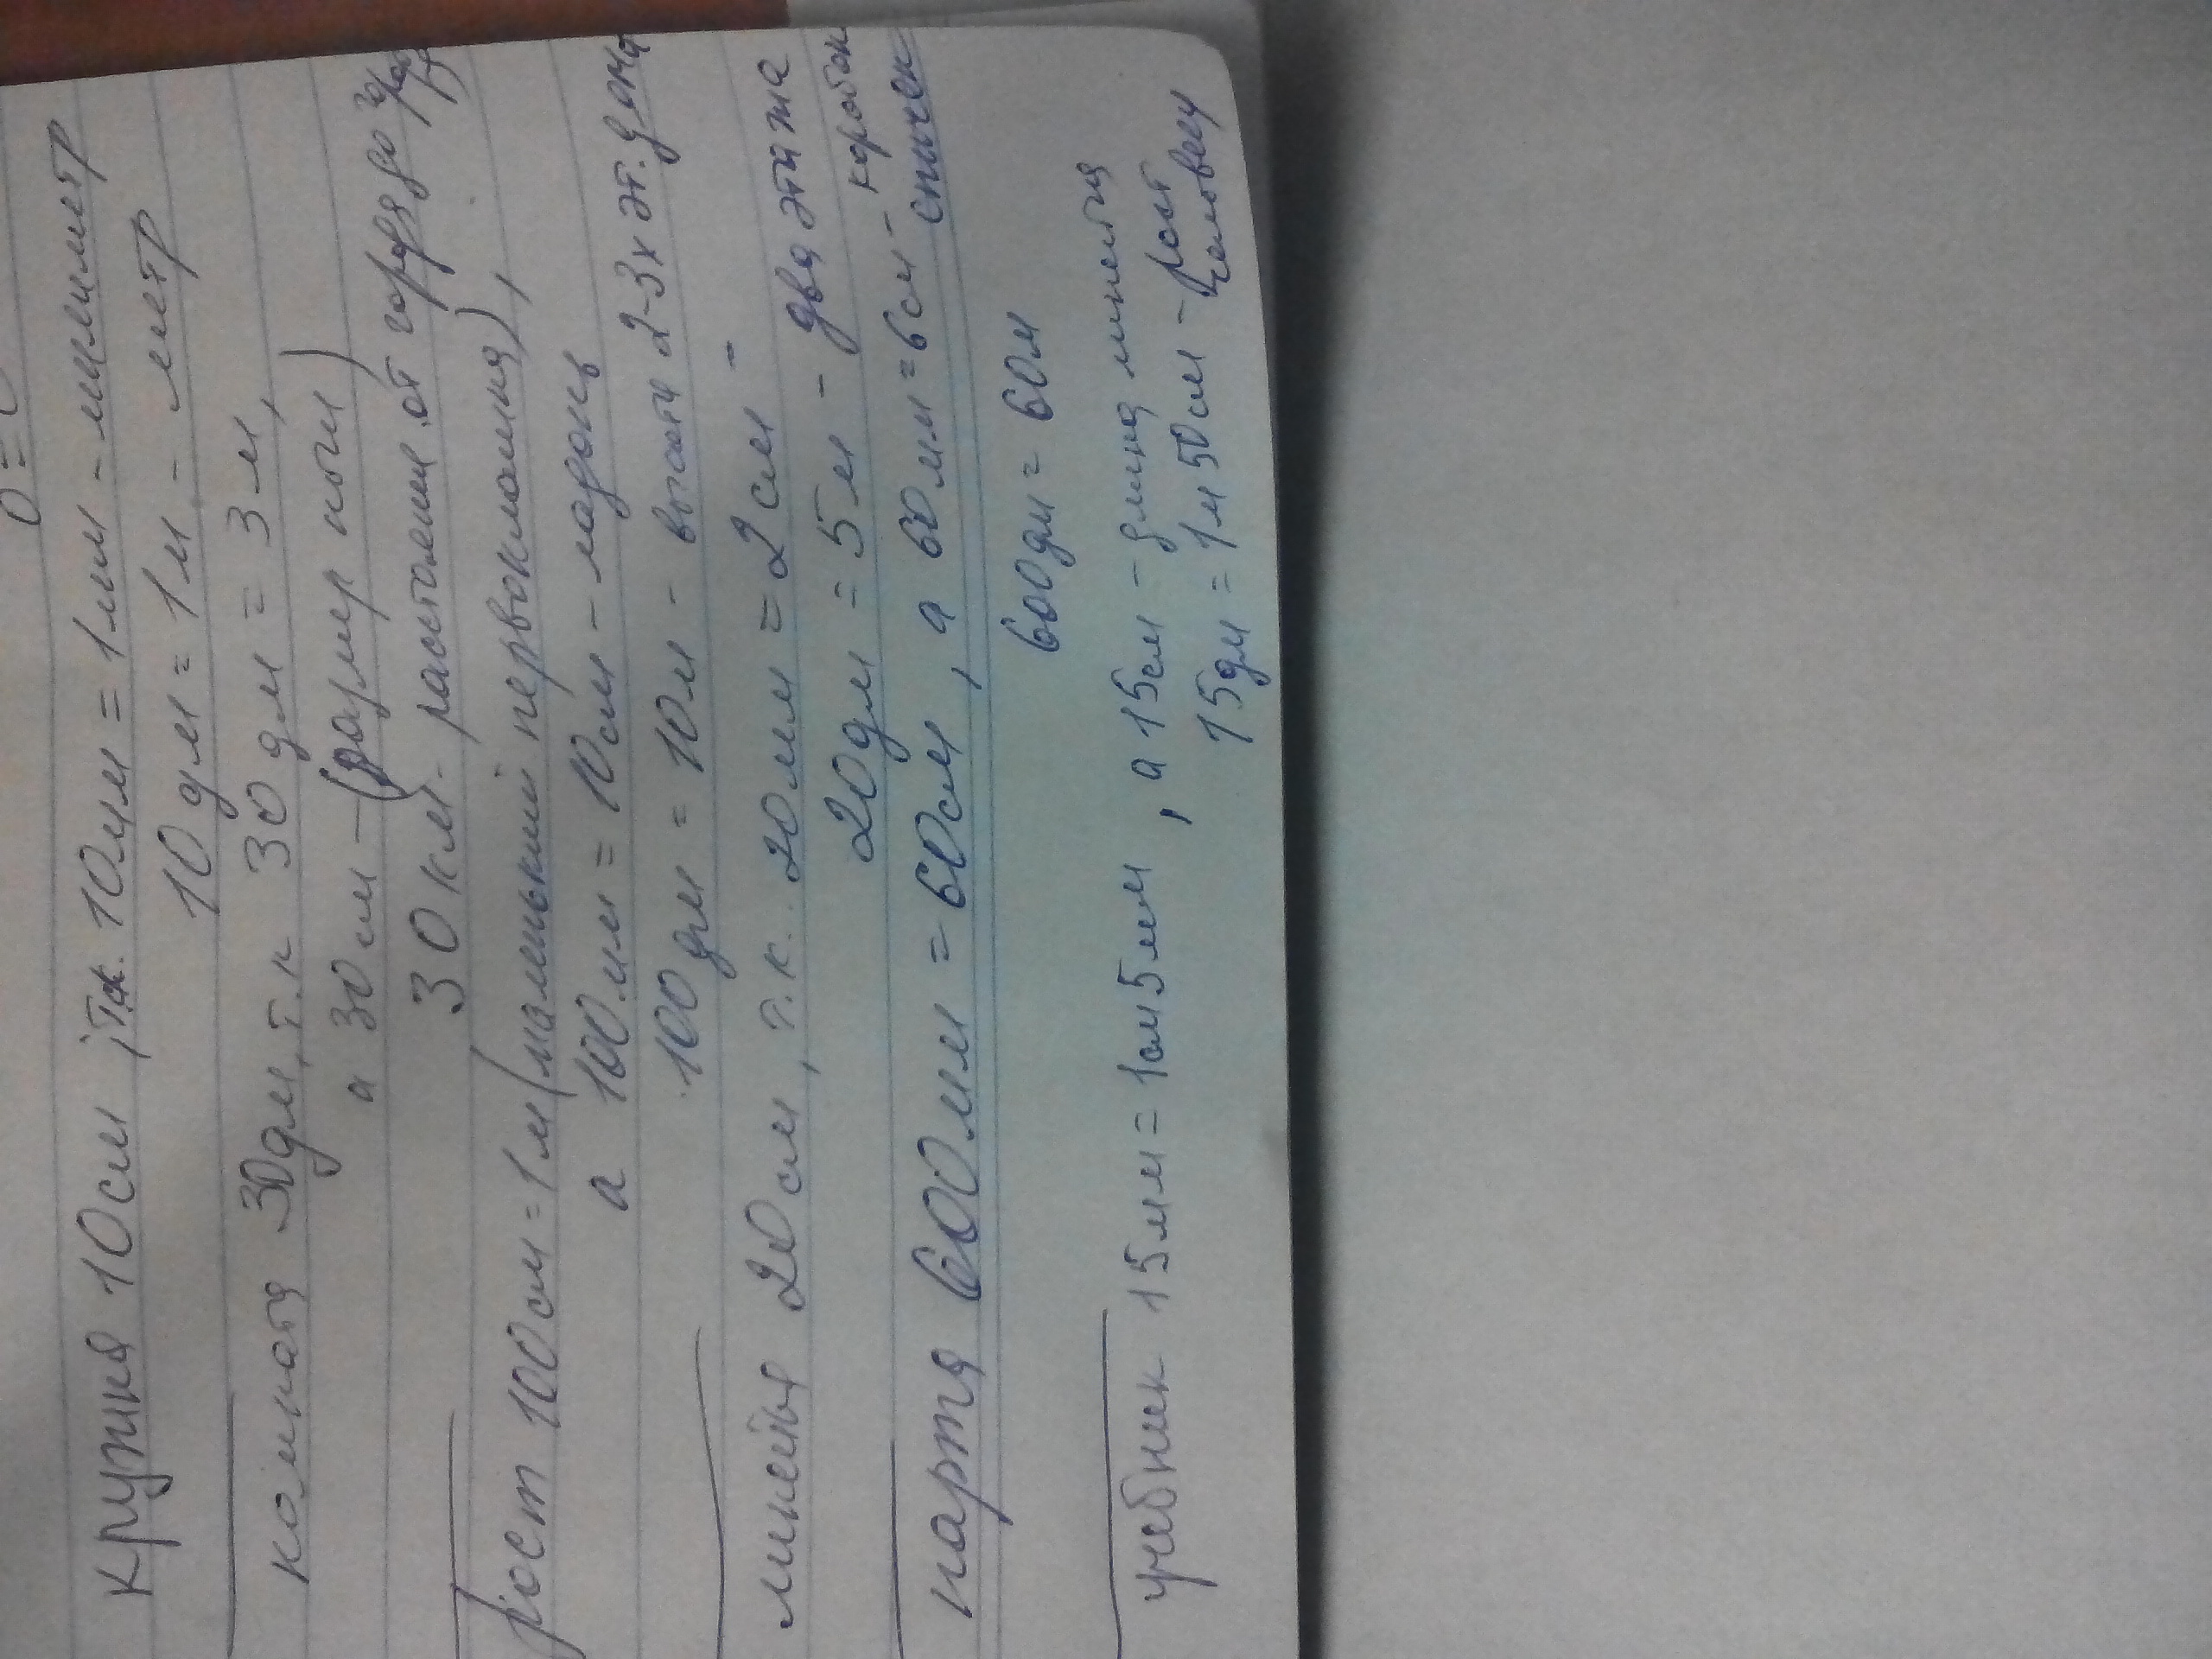 кружка 10см, т.к. 10мм = 1мм - миллиметр
10дм = 1м - метр
комната 30дм, т.к 30дм = 3м,
а 30см - (размер ноги)
30км - расстояние от города до
рост 100см = 1м (маленький первоклашка),
а 100мм = 10см - ладонь
100дм = 10м - высота 2-3х эт. дома
линейка 20см, т.к. 20мм = 2см -
20дм = 5м - два этажа
парта 600мм = 60см, а 60мм = 6см - коробок спичек
600дм = 60м
учебник 15мм = 1см5мм, а 15см - длина
15дм = 1м50см - рост человеку